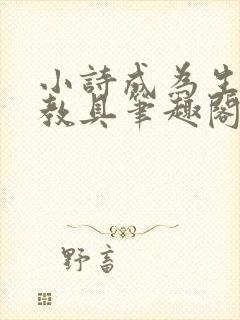 小詩成為生
教具筆趣閣
野畜